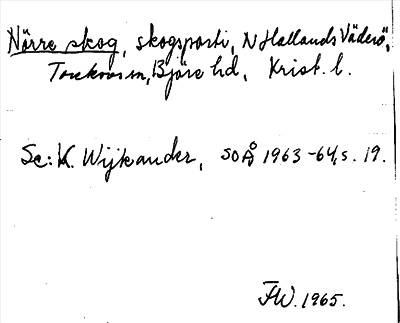 Nörre skog, skogsparti, N Hallands Väderö,
Torekovs sn, Bjäre hd, Krist. l.
Se: K. Wijkander, SOÅ 1963-64, s. 19.
FW. 1965.